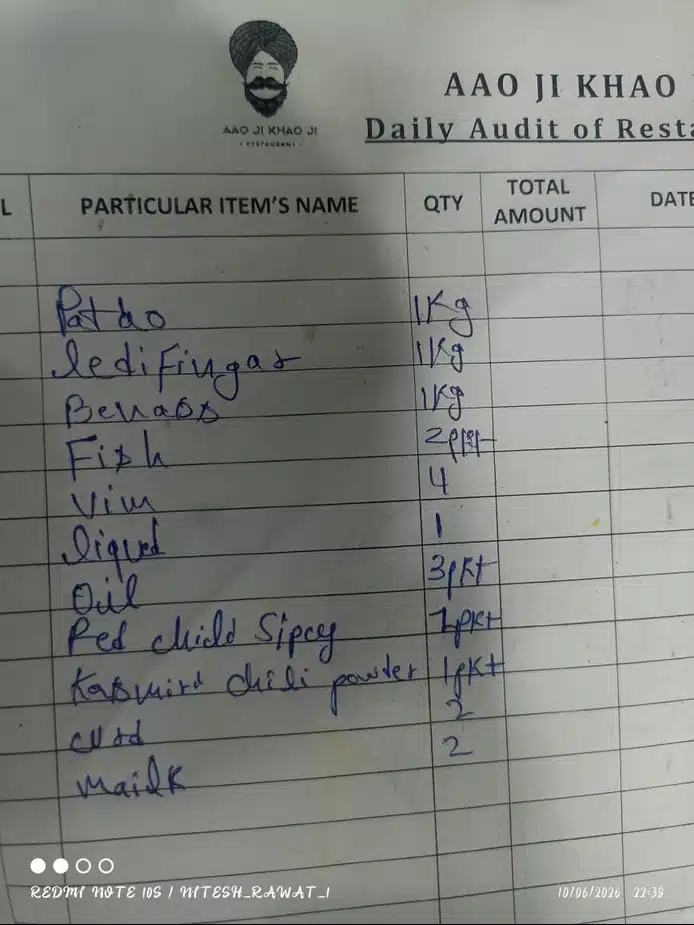 AAO JI KHAO JI
• RESTAURANT •
AAO JI KHAO
Daily Audit of Resta
L PARTICULAR ITEM'S NAME QTY TOTAL AMOUNT DATE
Patao 1Kg
ledifingar 1Kg
Benaos 1Kg
Fish 2pkt
Vim 4
liqued 1
Oil 3pkt
Red child Sipcy 1pkt
Kasmiri chili powder 1pkt
curd 2
Mailk 2
REDMI NOTE 10S / NITESH_RAWAT_1 10/06/2026 22:38